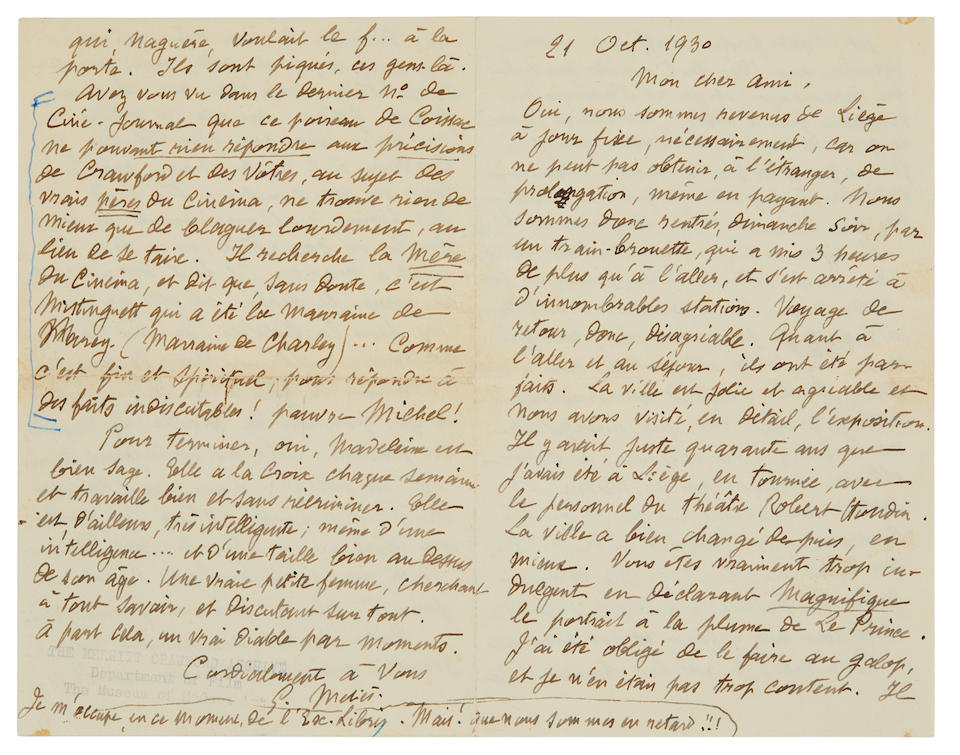 21 Oct. 1930
Mon cher ami.
Oui, nous sommes revenus de Liège
à jour fixe, nécessairement, car on
ne peut pas obtenir, à l'étranger, de
prolongation, même en payant. Nous
sommes donc rentrés, dimanche soir, par
un train-brouette, qui a mis 3 heures
de plus qu'à l'aller, et s'est arrêté à
d'innombrables stations. Voyage de
retour, donc, désagréable. Quant à
l'aller et au séjour, ils ont été par-
faits. La ville est jolie et agréable et
nous avons visité, en détail, l'exposition.
Il y avait juste quarante ans que
j'avais été à Liège, en tournée, avec
le personnel du théâtre Robert Houdin.
La ville a bien changé depuis, en
mieux. Vous êtes vraiment trop in-
dulgent en déclarant Magnifique
le portrait à la plume de Le Prince.
J'ai été obligé de le faire au galop,
et je n'en étais pas trop content. Il
qui, naguère, voulait le f... à la
porte. Ils sont piqués, ces gens-là.
Avez vous vu dans le dernier No de
Ciné-Journal que ce poireau de Coissac
ne pouvant rien répondre aux précisions
de Crawford et des Vôtres, au sujet des
vrais pères du Cinéma, ne trouve rien de
mieux que de blaguer lourdement, au
lieu de se taire. Il recherche la Mère
du Cinéma, et dit que sans doute, c'est
Mistinguett qui a été la marraine de
Marey. (Marraine de Charley)... Comme
c'est fin et spirituel, pour répondre à
des faits indiscutables! pauvre Michel!
Pour terminer, oui, Madeleine est
bien sage. Elle a la Croix chaque semaine
et travaille bien et sans récriminer. Elle
est, d'ailleurs, très intelligente; même d'une
intelligence... et d'une taille bien au dessus
de son âge. Une vraie petite femme, cherchant
à tout savoir, et discutant sur tout.
à part cela, un vrai diable par moments.
Cordialement à Vous
G. Méliès
Je m'occupe, en ce moment, de l'Ex-Libris. Mais! que nous sommes en retard!!!
THE MERRITT CRAWFORD
Department of Film
The Museum of